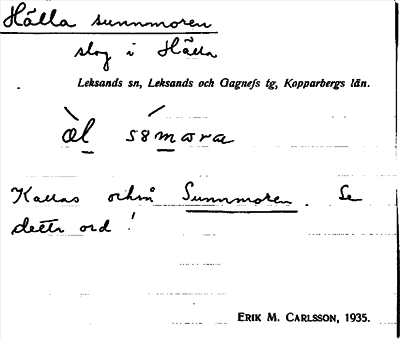 Hälla sunnmoren
skog i Hälla
Leksands sn, Leksands och Gagnefs tg, Kopparbergs län.
Kallas också Sunnmoren. Se
detta ord!
ERIK M. CARLSSON, 1935.